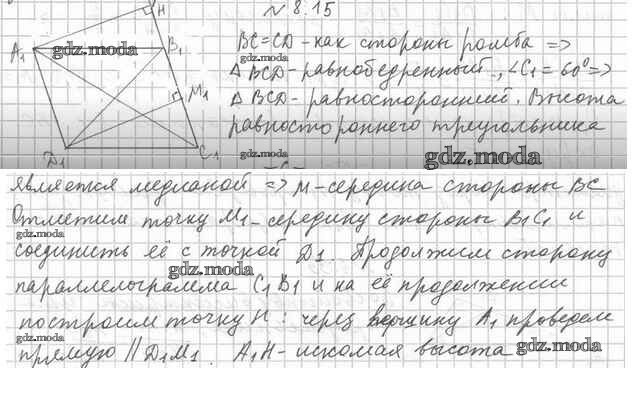 № 8.15
H
A₁
B₁
M₁
D₁
C₁
gdz.moda
BC=CD - как стороны ромба =>
gdz.moda
△ BCD - равнобедренный, ∠C₁=60° =>
gdz.moda
△ BCD - равносторонний. Высота
равностороннего треугольника
gdz.moda
является медианой => M - середина стороны BC
Отметим точку M₁ - середину стороны B₁C₁ и
gdz.moda
соединить её с точкой D₁. Продолжим сторону
gdz.moda
параллелограмма C₁B₁ и на её продолжении
построим точку H: через вершину A₁ проведем
gdz.moda
прямую || D₁M₁. A₁H - искомая высота
gdz.moda